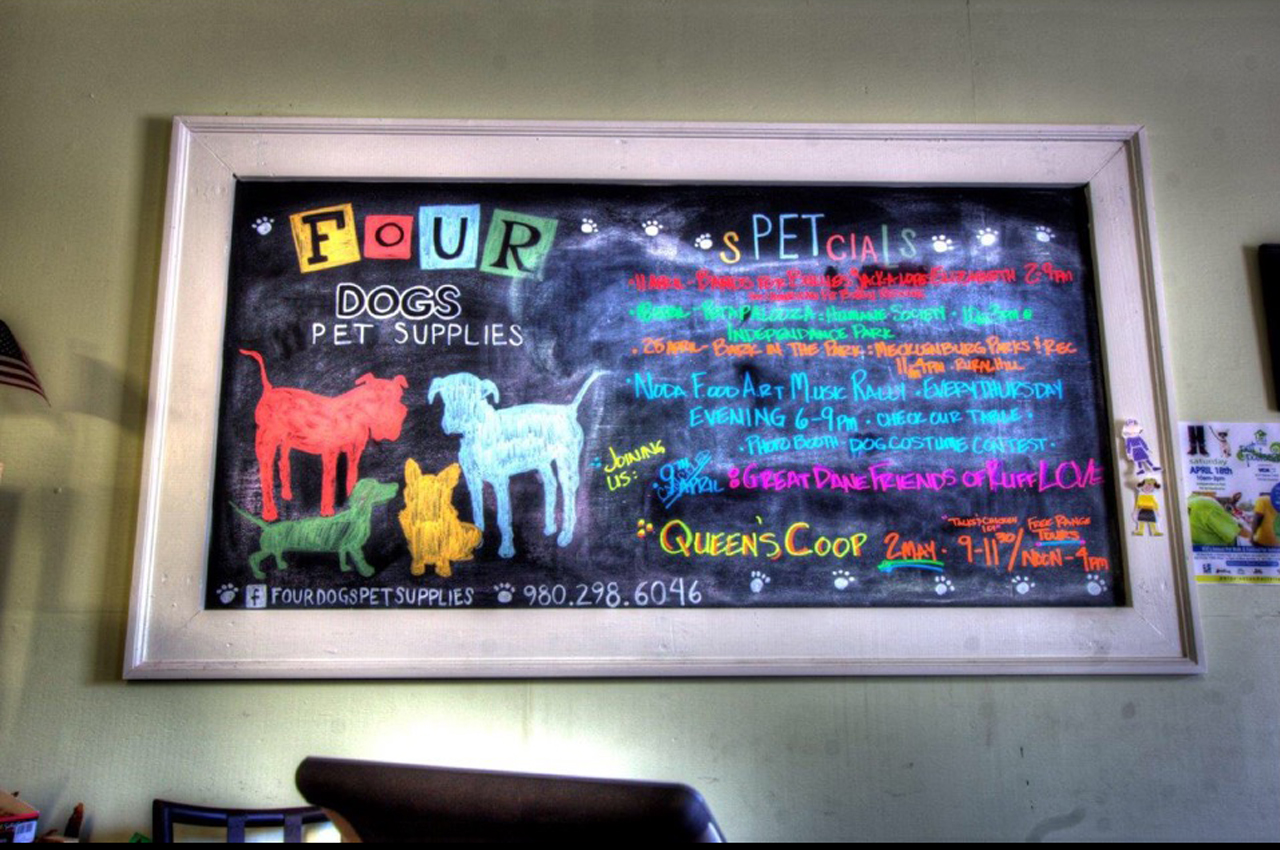 FOUR
DOGS
PET SUPPLIES
FOURDOGSPETSUPPLIES
980.298.6046
sPETcials
11 APRIL - BANDS FOR BULLIES JACKALOPE ELIZABETH 2-9PM
18 APRIL - PETAPALOOZA: HUMANE SOCIETY · 10AM-3PM @
INDEPENDANCE PARK
· 25 APRIL - BARK IN THE PARK: MECKLENBURG PARKS & REC
11AM-4PM · RURAL HILL
· NODA FOOD ART MUSIC RALLY · EVERY THURSDAY
EVENING 6-9PM · CHECK OUR TABLE ·
· PHOTO BOOTH · DOG COSTUME CONTEST ·
JOINING
US:
9TH
APRIL
GREAT DANE FRIENDS OF RUFF LOVE
QUEEN'S COOP 2 MAY · 9-11:30/
FREE RANGE
TOURS
NOON-4PM
saturday
APRIL 18th
10am-3pm